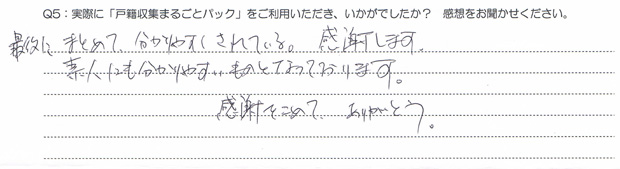 Q5：実際に「戸籍収集まるごとパック」をご利用いただき、いかがでしたか？ 感想をお聞かせください。
最後に まとめて、分かりやすくされている。 感謝します。
素人にも分かりやすいものとなっております。
感謝をこめて ありがとう。